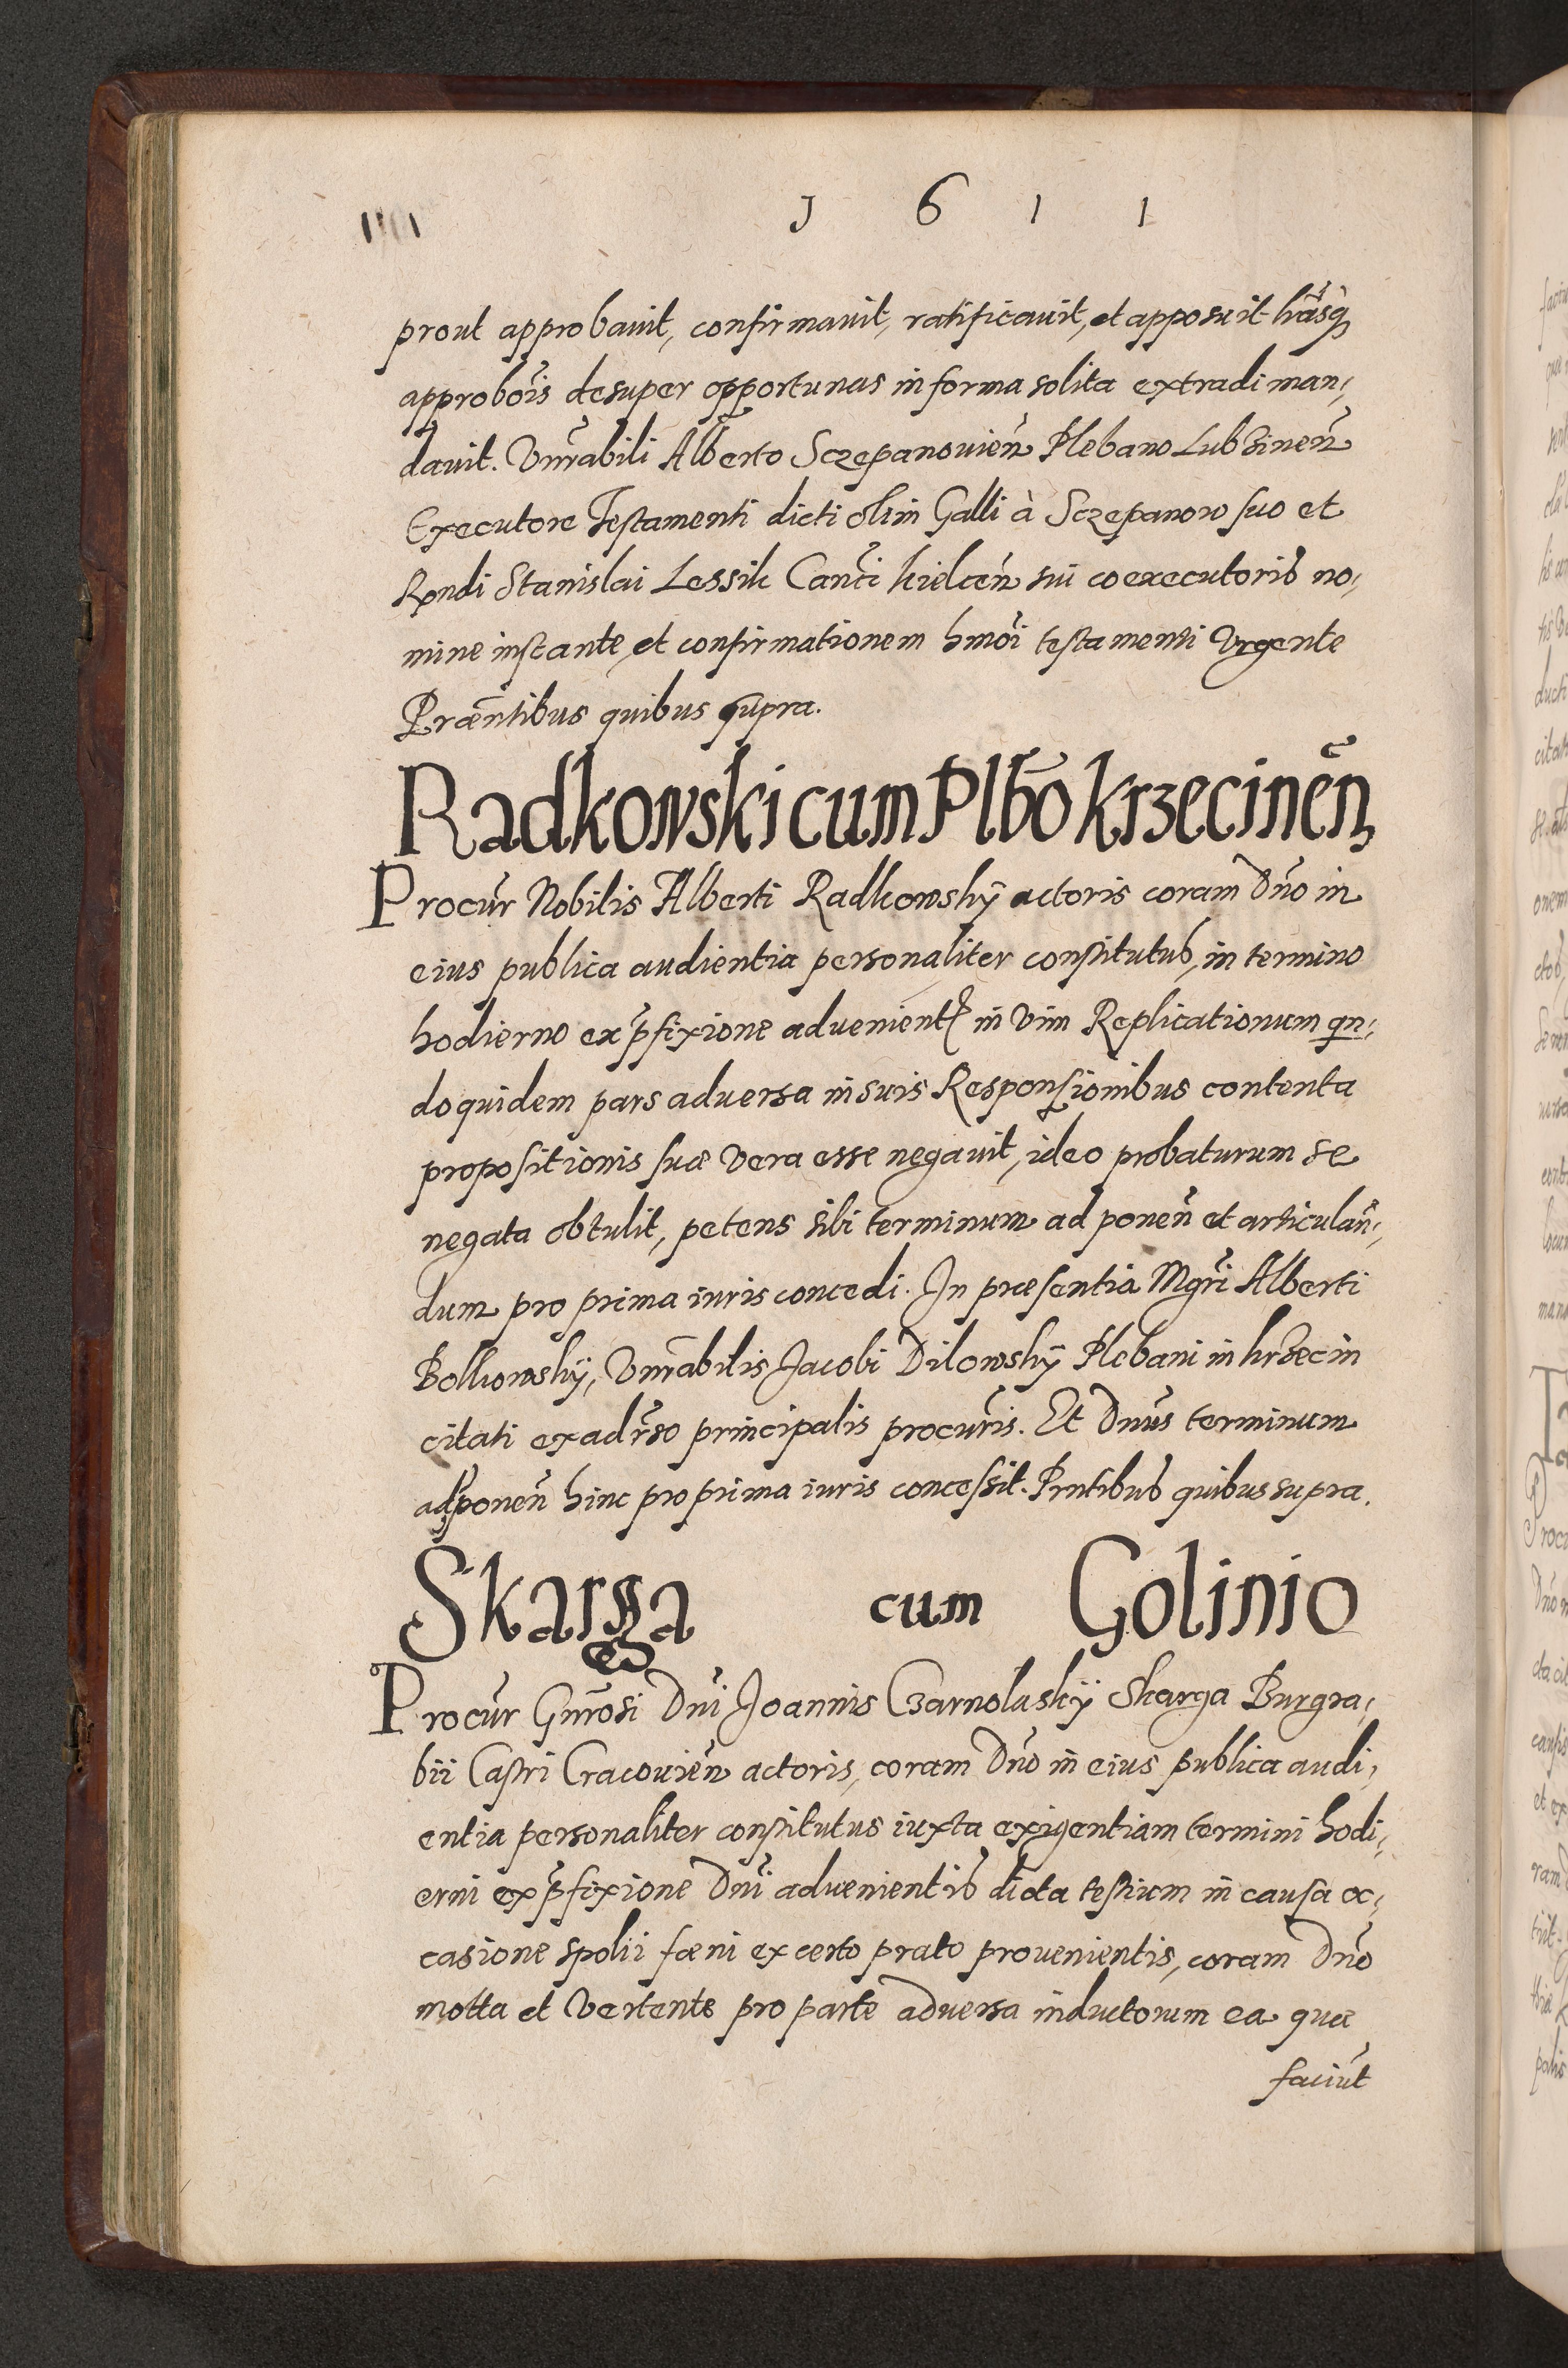 1 6 1 1
prout approbauit, confirmauit, ratificauit, et apposuit l̃rãsq̃
approbõis desuper opportunas in forma solita extradi man,
dauit. Vnr̃abili Alberto Sczepanouień Plebano Lubzineń
Executore Testamenti dicti olim Galli à Sczepanow suo et
Rndi Stanislai Lessik Canc̃i kielceń sui coexecutoris no,
mine instante, et confirmationem hmõi testamenti Vrgente
Præñtibus quibus supra.
Radkowski cum Plb̃o krzecineń
Procur̃ Nobilis Alberti Radkowskÿ actoris coram Dño in
eius publica audientia personaliter constitutus, in termino
hodierno ex p̃fixione aduenienti in Vim Replicationum qn,
doquidem pars aduersa in suis Responsionibus contenta
propositionis suæ Vera esse negauit, ideo probaturum se
negata obtulit, petens sibi terminum ad poneñ et articulañ,
dum pro prima iuris concedi. In præsentia Mgr̃i Alberti
Bolkowskÿ, Vnr̃abilis Jacobi Dilowskÿ Plebani in krzecin
citati ex adr̃so principalis procur̃is. Et Dnũs terminum
ad poneñ hinc pro prima iuris concessit. Pntibus quibus supra.
Skarga cum Golinio
Procur̃ Gnr̃osi Dñi Joannis Czarnolaskÿ Skarga Burgra,
bii Castri Cracouień actoris, coram Dño in eius publica audi,
entia personaliter constitutus iuxta exigentiam termini hodi,
erni ex p̃fixione Dñi aduenientis dicta testium in causa oc,
casione spolii fœni ex certo prato prouenientis, coram Dño
motta et Vertente pro parte aduersa inductorum ea quæ
faciũt